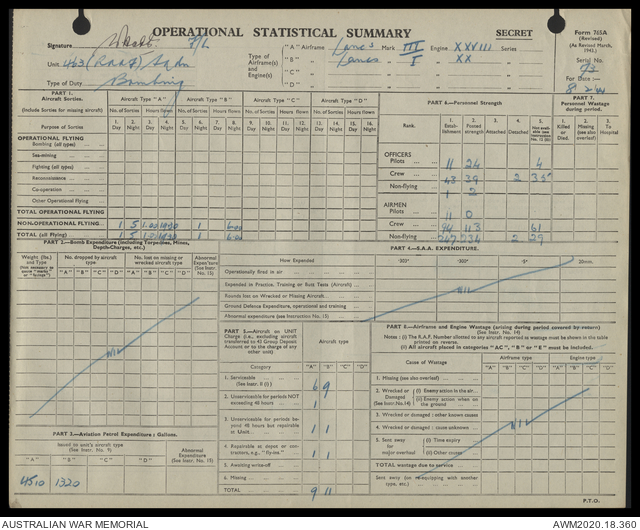 OPERATIONAL STATISTICAL SUMMARY
SECRET
Form 765A
(Revised)
(As Revised March, 1942.)
Signature F/L
Unit 463 (RAAF) Sqdn
Type of Duty Bombing
Type of Airframe(s) and Engine(s)
"A" Airframe Lancs Mark III Engine XXVIII Series
"B" Lancs I XX
"C"
"D"
Serial No. 73
For Date:—
8.2.44
PART 1.
Aircraft Sorties.
(Include Sorties for missing aircraft)
Aircraft Type "A" Aircraft Type "B" Aircraft Type "C" Aircraft Type "D"
No. of Sorties Hours flown No. of Sorties Hours flown No. of Sorties Hours flown No. of Sorties Hours flown
Purpose of Sorties
1. Day 2. Night 3. Day 4. Night 5. Day 6. Night 7. Day 8. Night 9. Day 10. Night 11. Day 12. Night 13. Day 14. Night 15. Day 16. Night
OPERATIONAL FLYING
Bombing (all types)
Sea-mining
Fighting (all types)
Reconnaissance
Co-operation
Other Operational Flying
TOTAL OPERATIONAL FLYING
NON-OPERATIONAL FLYING 1 5 1.00 19.30 1 6.00
TOTAL (all Flying) 1 5 1.00 19.30 1 6.00
PART 6.—Personnel Strength
Rank.
1. Establishment 2. Posted strength 3. Attached 4. Detached
OFFICERS
Pilots 11 24 4
Crew 43 39 2 35
Non-flying 1 2
AIRMEN
Pilots 11 0
Crew 94 113 61
Non-flying 247 234 2 29
PART 7.
Personnel Wastage during period.
1. Killed or Died. 2. Missing (see also overleaf) 3. To Hospital
PART 2.—Bomb Expenditure (including Torpedoes, Mines, Depth-Charges, etc.)
Weight (lbs.) and Type
No. dropped by aircraft type
No. lost on missing or wrecked aircraft type
Abnormal Expenditure (See Instr. 15)
"A" "B" "C" "D" "A" "B" "C" "D"
NIL
PART 3.—Aviation Petrol Expenditure: Gallons.
Issued to unit's aircraft type (See Instr. No. 9)
Abnormal Expenditure (See Instr. 15)
"A" "B" "C" "D"
4510 1320
PART 4.—S.A.A. EXPENDITURE.
How Expended ·303" ·5" 20mm.
Operationally fired in air
Expended in Practice, Training or Butt Tests (Aircraft)
Rounds lost on Wrecked or Missing Aircraft
Ground Defence Expenditure, operational and training
Abnormal expenditure (see Instruction No. 15)
NIL
PART 5.—Aircraft on UNIT Charge (i.e., excluding aircraft transferred to 43 Group Deposit Account or to the charge of any other unit)
Aircraft type
Category "A" "B" "C" "D"
1. Serviceable (See Instr. 8 (i)) 6 9
2. Unserviceable for periods NOT exceeding 48 hours 1
3. Unserviceable for periods beyond 48 hours but repairable in Unit 1 1
4. Repairable at depot or contractors, e.g., "fly-ins" 1 1
5. Awaiting write-off
6. Missing
TOTAL 9 11
PART 8.—Airframe and Engine Wastage (arising during period covered by return)
(See Instr. No. 14)
Notes: (i) The R.A.F. Number allotted to any aircraft reported as wastage must be shown in the table printed on reverse.
(ii) All aircraft placed in categories "AC", "B" or "E" must be included.
Cause of Wastage Airframe type Engine type
"A" "B" "C" "D" "A" "B" "C" "D"
1. Missing (see also overleaf)
2. Wrecked or Damaged (See Instr. No. 14) (i) Enemy action in the air
(ii) Enemy action when on the ground
3. Wrecked or damaged: other known causes
4. Wrecked or damaged: cause unknown
5. Sent away for major overhaul (i) Time expiry
(ii) Other causes
NIL
TOTAL wastage due to service
Sent away (on re-equipping with another type, etc.)
P.T.O.
AUSTRALIAN WAR MEMORIAL
AWM2020.18.360